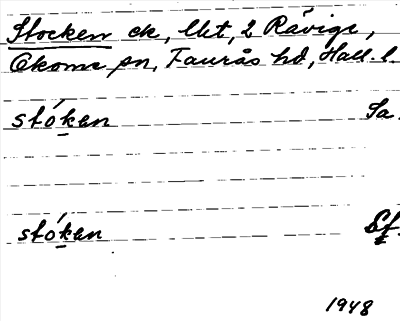 Stocken ck, lht, 2 Rävige,
Okome sn, Faurås hd, Hall. l.
stóken Sa.
stóken Sf.
1948